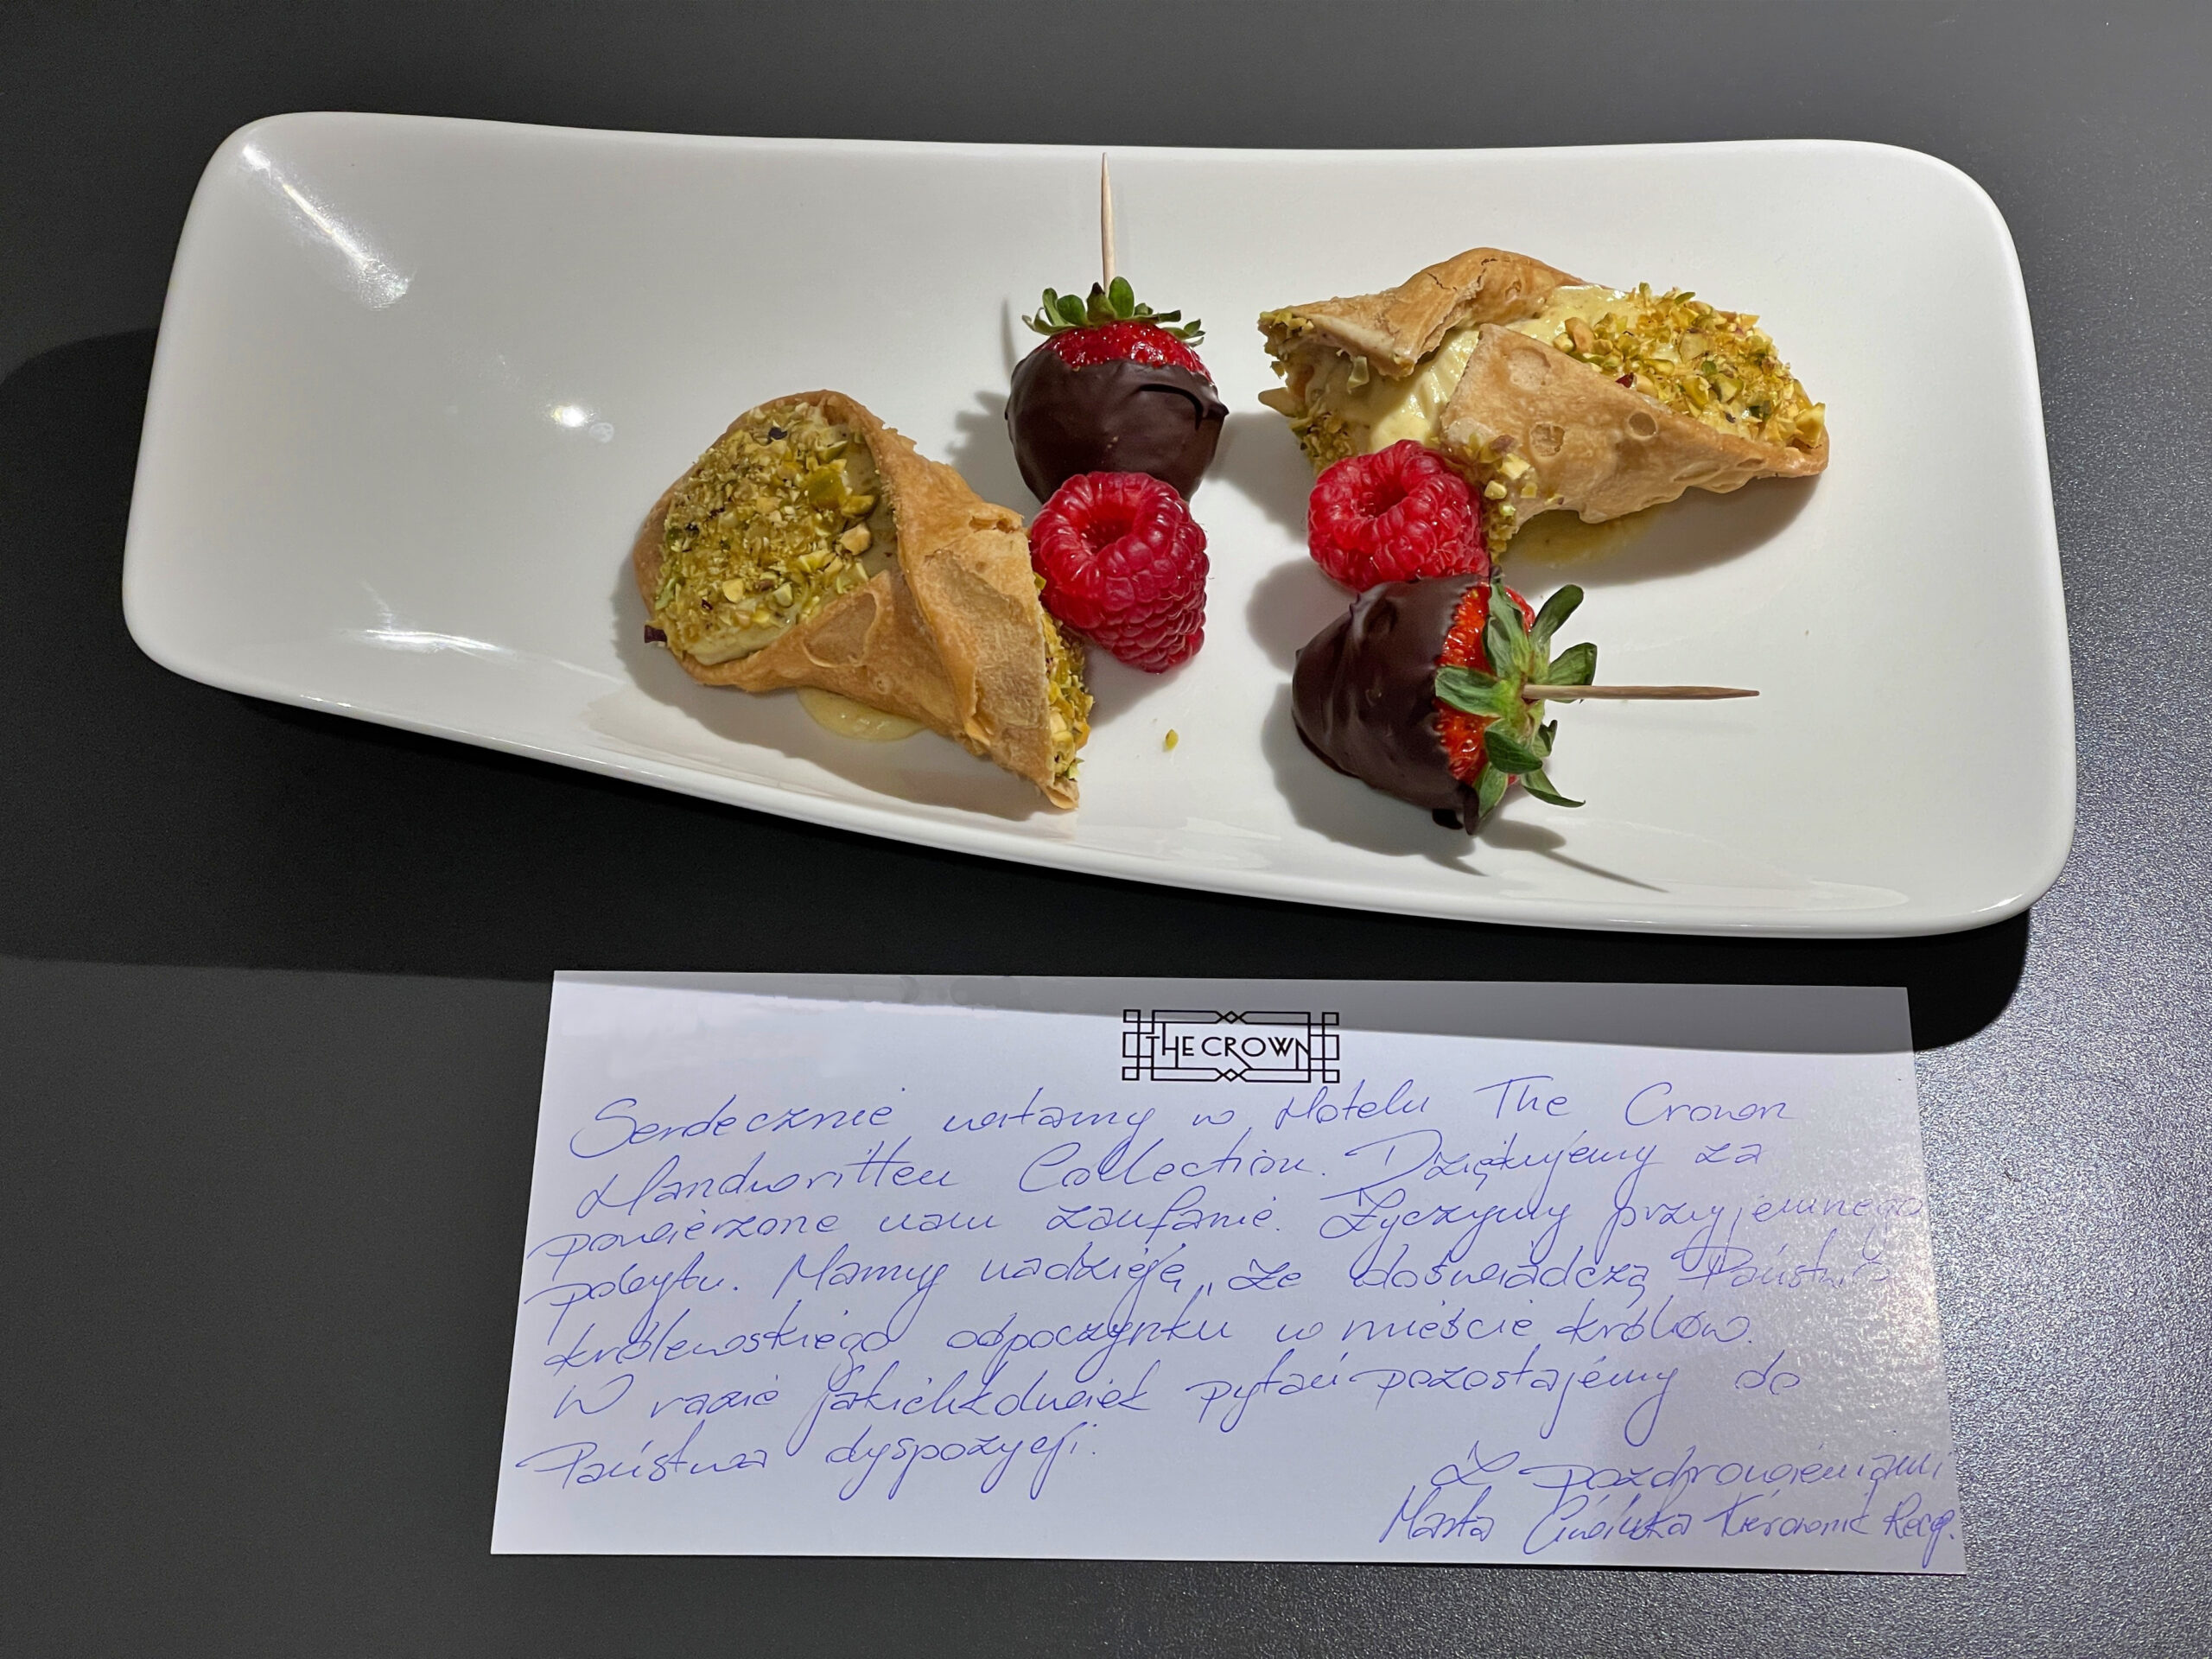 THE CROWN
Serdecznie witamy w Hotelu The Crown
Handwritten Collection. Dziękujemy za
powierzone nam zaufanie. Życzymy przyjemnego
pobytu. Mamy nadzieję, że doświadczą Państwo
królewskiego odpoczynku w mieście królów.
W razie jakichkolwiek pytań pozostajemy do
Państwa dyspozycji.
Z pozdrowieniami
Marta Kierownik Recep.